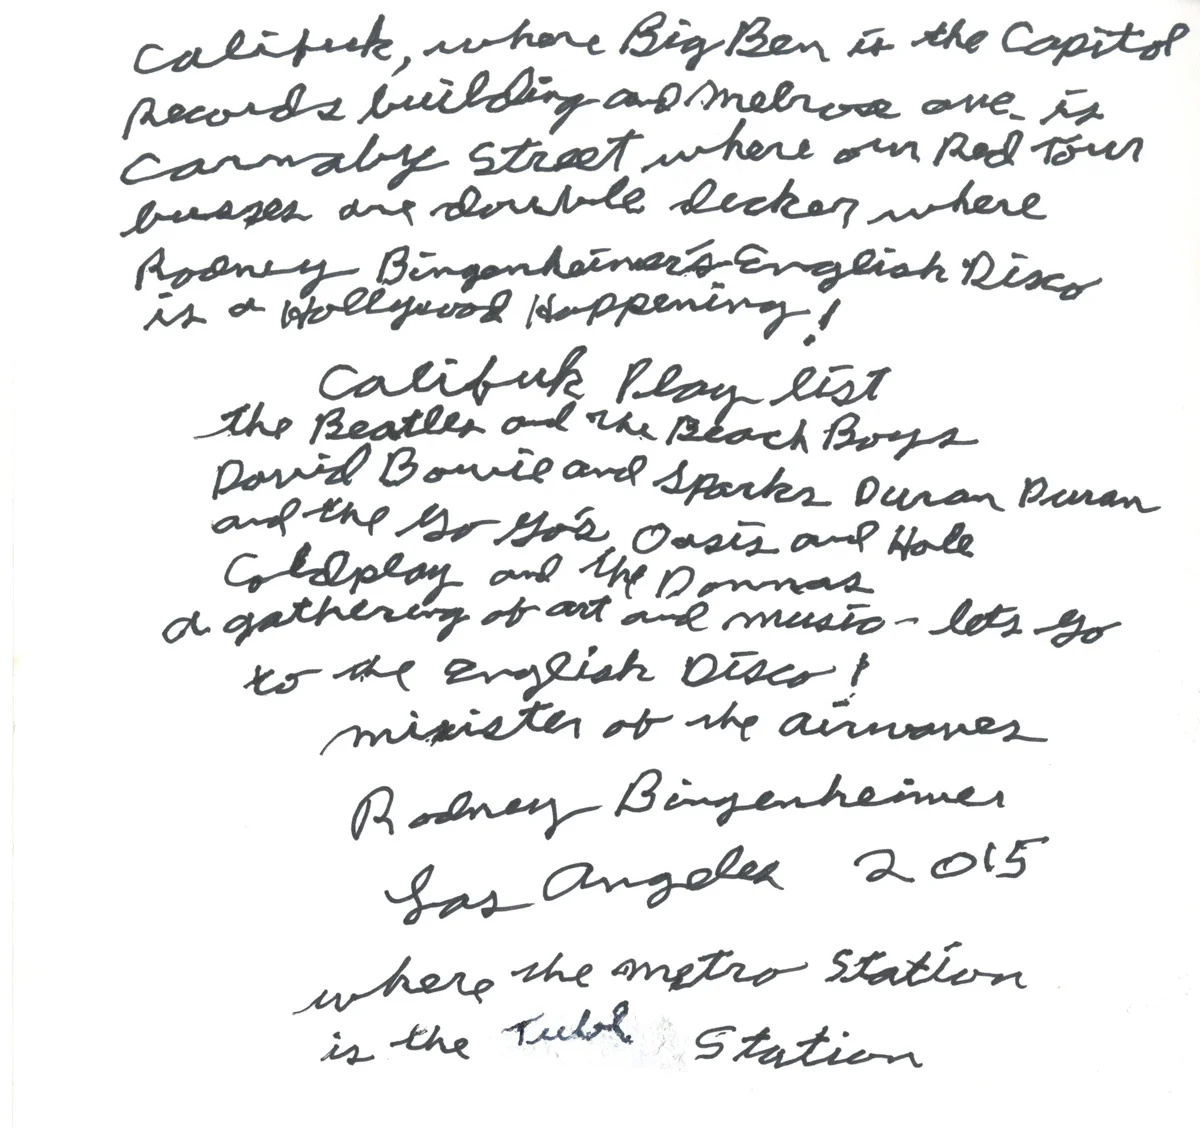 Califuk, where Big Ben is the Capitol
Records building and Melrose ave. is
Carnaby Street, where our Red Tour
busses are double decker, where
Rodney Bingenheimer's English Disco
is a Hollywood Happening!
Califuk Play list
the Beatles and the Beach Boys
David Bowie and Sparks Duran Duran
and the Go Go's, Oasis and Hole
Coldplay and the Donnas
a gathering of art and music - lets go
to the English Disco!
minister of the airwaves
Rodney Bingenheimer
Los Angeles 2015
where the metro Station
is the Tube Station